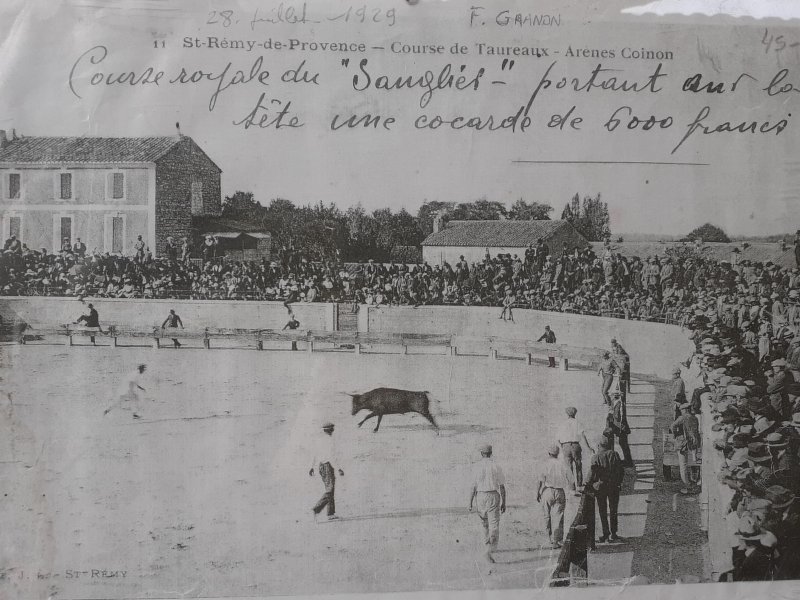 28 juillet 1929 F. GAGNON 45-
11 St-Rémy-de-Provence — Course de Taureaux - Arènes Coinon
Course royale du "Sanglier" portant sur la
tête une cocarde de 6000 francs
ST-RÉMY